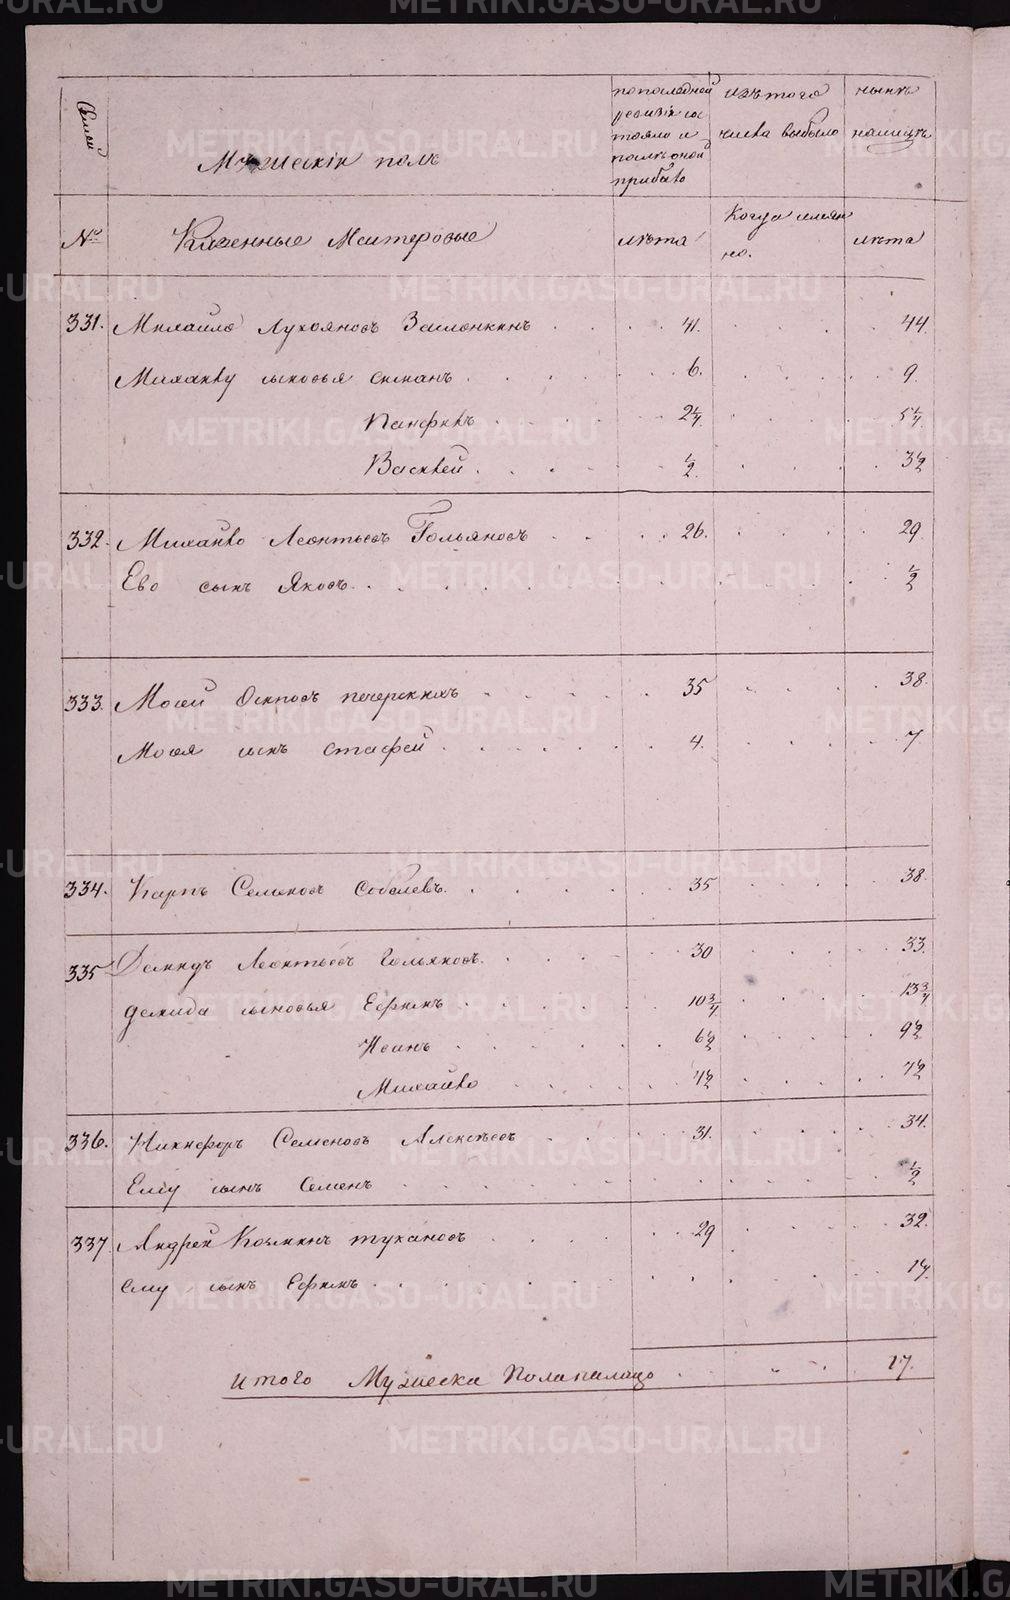 Семьи
Мужескiй полъ
по последней
ревизiи со
стояло и
после оной
прибыло
изъ того
числа выбыло
ныне
налицо
№
Казенные Мастеровые
лета
Когда имян
но.
лета
331. Михайло Лукояновъ 41. 44.
Михайлу сыновья Степанъ 6. 9.
Панфилъ 2¼ 5¼
Василей ½ 3½
332. Михайло Леонтьевъ Гольяновъ 26. 29
Ево сынъ Яковъ ½
333. Мосей Осиповъ печерскихъ 35 38.
Мосея сынъ Стафей 4. 7
334. Карпъ Семеновъ Соболевъ 35 38.
335 Демидъ Леонтьевъ Гольяновъ 30 33.
Демида сыновья Ефимъ 10¾ 13¾
Иванъ 6½ 9½
Михайло 4½ 7½
336. Никифоръ Семеновъ Алексеевъ 31. 34.
Ему сынъ Семенъ ½
337 Андрей Козминъ тукановъ 29 32.
ему сынъ Ефимъ 1¼
итого Мужеска Пола налицо 17.
METRIKI.GASO-URAL.RU